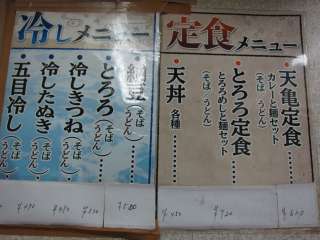 冷しメニュー
・納豆(そば うどん)
・とろろ(そば うどん)
・冷しきつね(そば うどん)
・冷したぬき(そば うどん)
・五目冷し
定食メニュー
・天亀定食
カレーと麺セット
(そば うどん)
・とろろ定食
とろろめしと麺セット
(そば うどん)
・天丼
各種